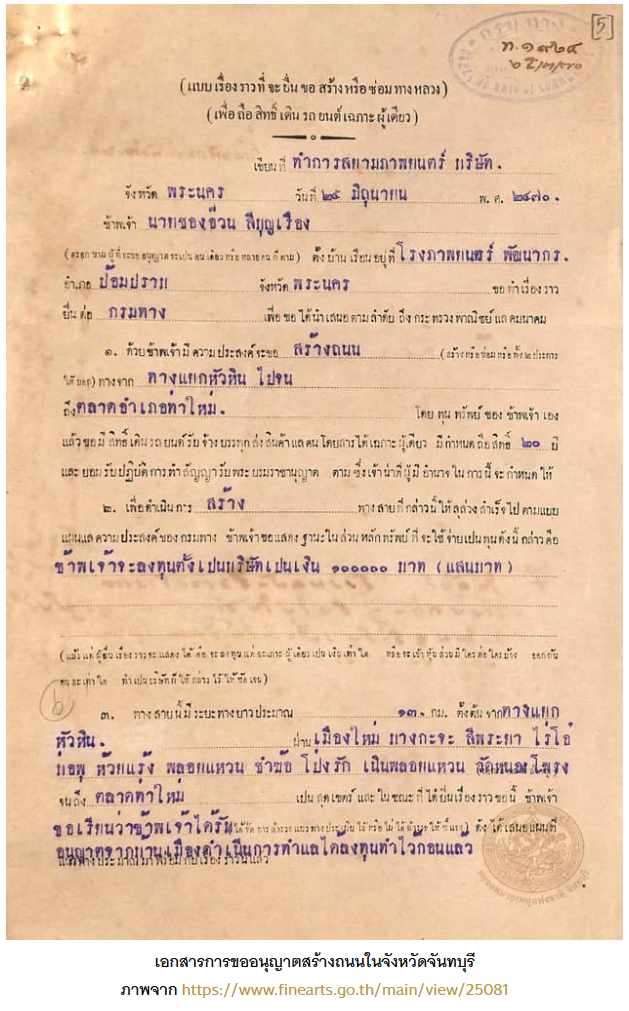 [5]
กรมทาง
ท.๑๙๒๔
(แบบ เรื่องราว ที่ จะ ยื่น ขอ สร้าง หรือ ซ่อม ทาง หลวง)
(เพื่อ ถือ สิทธิ์ เดิน รถ ยนต์ เฉภาะ ผู้เดียว)
เขียนที่ ทำการสยามภาพยนตร์ บริษัท.
จังหวัด พระนคร วันที่ ๒๕ มิถุนายน พ.ศ. ๒๔๗๐.
ข้าพเจ้า นายซองอ๊วน สีบุญเรือง
(กรอก นาม ผู้ ที่ จะ ขอ อนุญาต จะ เป็น คน เดียว หรือ หลาย คน ก็ ตาม) ตั้ง บ้าน เรือน อยู่ ที่ โรงภาพยนตร์ พัฒนากร.
อำเภอ ป้อมปราบ จังหวัด พระนคร ขอ ทำ เรื่อง ราว
ยื่น ต่อ กรมทาง เพื่อ ขอ ได้ นำ เสนอ ตาม ลำดับ ถึง กระทรวง พาณิชย์ แล คมนาคม
๑. ด้วย ข้าพเจ้า มี ความ ประสงค์ จะ ขอ สร้างถนน (สร้าง หรือ ซ่อม หรือ ทั้ง ๒ ประการ
ให้ บอก) ทาง จาก ทางแยกหัวหิน ไปจน
ถึง ตลาดอำเภอท่าใหม่. โดย ทุน ทรัพย์ ของ ข้าพเจ้า เอง
แล้ว ขอ มี สิทธิ์ เดิน รถ ยนต์ รับ จ้าง บรรทุก ส่ง สินค้า แล คน โดยสาร ได้ เฉภาะ ผู้เดียว มี กำหนด ถือ สิทธิ์ ๒๐ ปี
และ ยอม รับ ปฏิบัติ การ ทำ สัญญา รับ พระ บรม ราชานุญาต ตาม ซึ่ง เจ้า น่าที่ ผู้ มี อำนาจ ใน การ นี้ จะ กำหนด ให้
๒. เพื่อ ดำเนิน การ สร้าง ทาง สาย ที่ กล่าว นี้ ให้ ลุล่วง สำเร็จ ไป ตาม แบบ
แผน แล ความ ประสงค์ ของ กรมทาง ข้าพเจ้า ขอ แสดง ฐานะ ใน ส่วน หลัก ทรัพย์ ที่ จะ ใช้ จ่าย เป็น ทุน ดัง นี้ กล่าว คือ
ข้าพเจ้าจะลงทุนตั้งเปนบริษัทเปนเงิน ๑๐๐๐๐๐ บาท (แสนบาท)
(แล้ว แต่ ผู้ยื่น เรื่อง ราว จะ แสดง ได้ คือ จะ ลง ทุน แต่ ฉะเภาะ ผู้ เดียว เป็น เงิน เท่า ใด หรือ จะ เข้า หุ้น ส่วน มี ใคร ต่อ ใคร บ้าง ออก กัน
คน ละ เท่า ใด ทำ เป็น บริษัท ก็ ให้ กล่าว ไว้ ให้ ชัด เจน)
๓. ทาง สาย นี้ มี ระยะ ทาง ยาว ประมาณ ๑๓. กม. ตั้ง ต้น จาก ทางแยก
หัวหิน. ผ่าน เมืองใหม่ บางกะจะ สีพระยา ไร่โอ๋
บ่อพุ ห้วยแร้ง พลอยแหวน ชำฆ้อ โป่งรัก เนินพลอยแหวน วัดหนองโพรง
จน ถึง ตลาดท่าใหม่ เป็น สุด เขตร์ และ ใน ขณะ ที่ ได้ ยื่น เรื่อง ราว ขอ นี้ ข้าพเจ้า
ขอเรียนว่าข้าพเจ้าได้รับ ดัง ได้ เสนอ แผนที่
อนุญาตจากบ้านเมืองดำเนินการทำแลได้ลงทุนทำไว้ก่อนแล้ว
เอกสารการขออนุญาตสร้างถนนในจังหวัดจันทบุรี
ภาพจาก https://www.finearts.go.th/main/view/25081